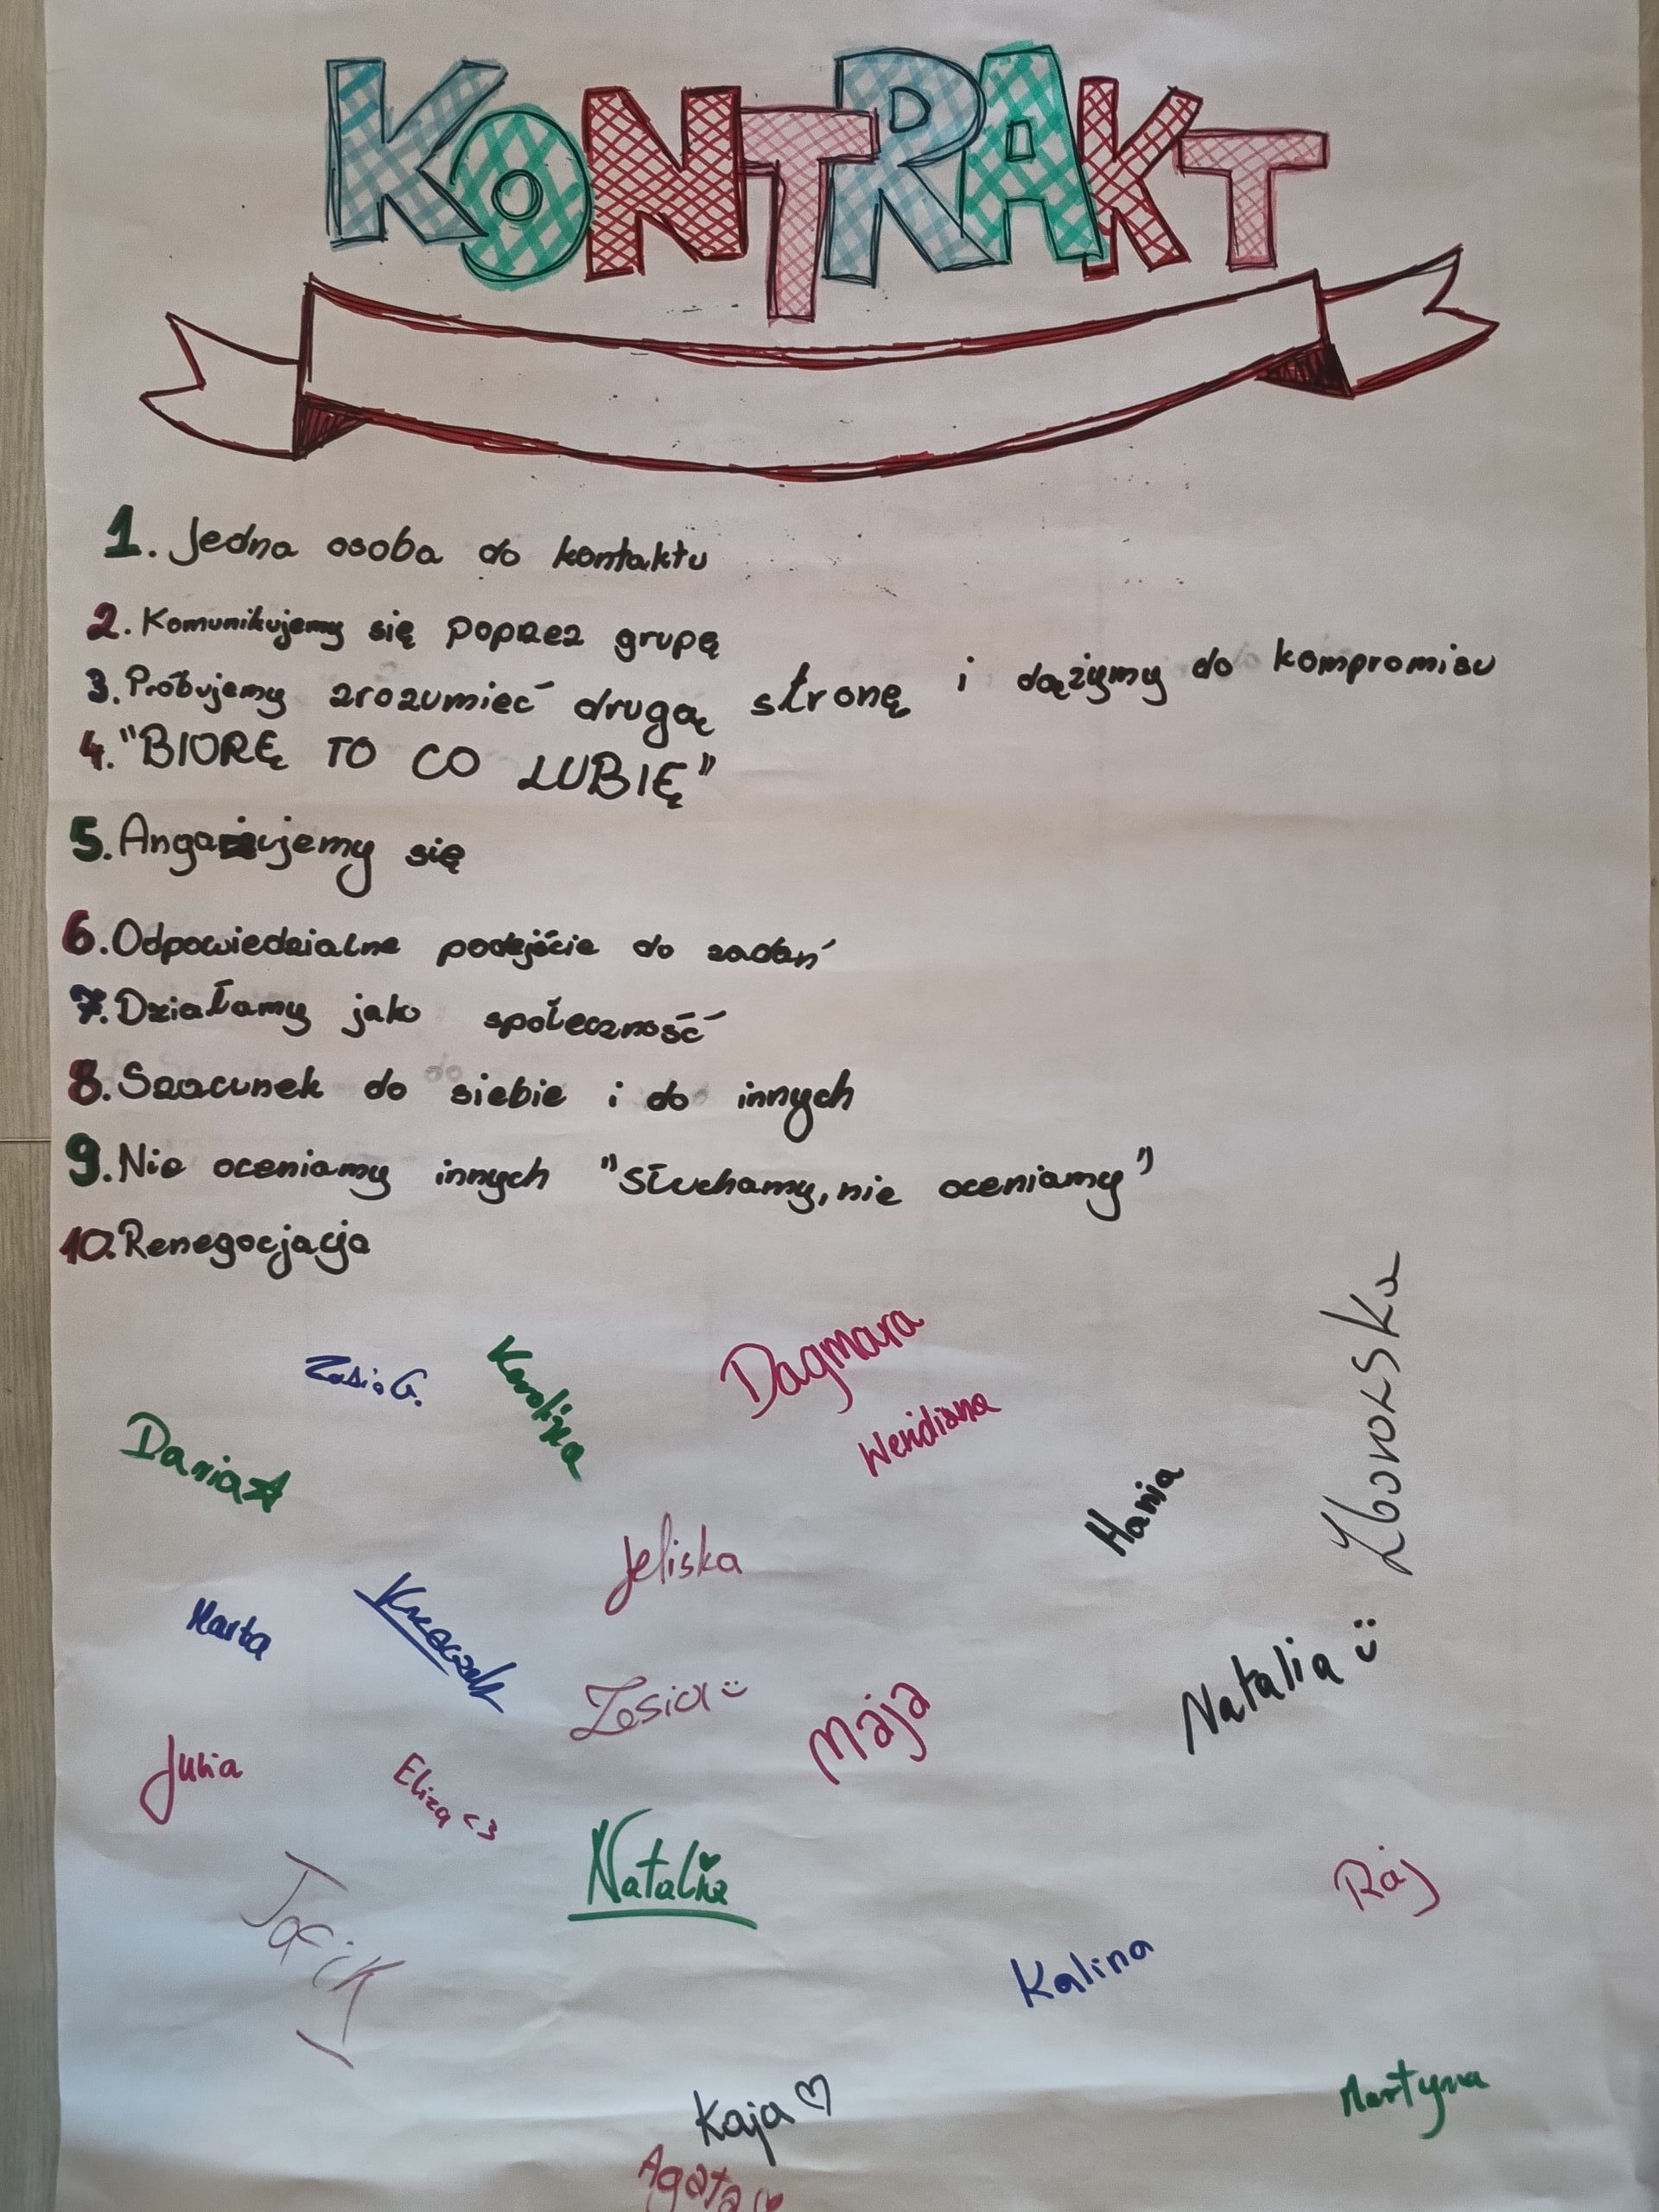 KONTRAKT
1. Jedna osoba do kontaktu
2. Komunikujemy się poprzez grupę
3. Próbujemy zrozumieć drugą stronę i dążymy do kompromisu
4. "BIORĘ TO CO LUBIĘ"
5. Angażujemy się
6. Odpowiedzialne podejście do zadań
7. Działamy jako społeczność
8. Szacunek do siebie i do innych
9. Nie oceniamy innych "Słuchamy, nie oceniamy"
10. Renegocjacja
Zosia G.
Karolina
Dagmara
Weridiana
Zborowska
Daria
Hania
Jeliska
Marta
Zosia :)
Maja
Natalia :)
Julia
Eliza <3
Natalia
Raj
Jacik
Kalina
Kaja ♡
Martyna
Agata